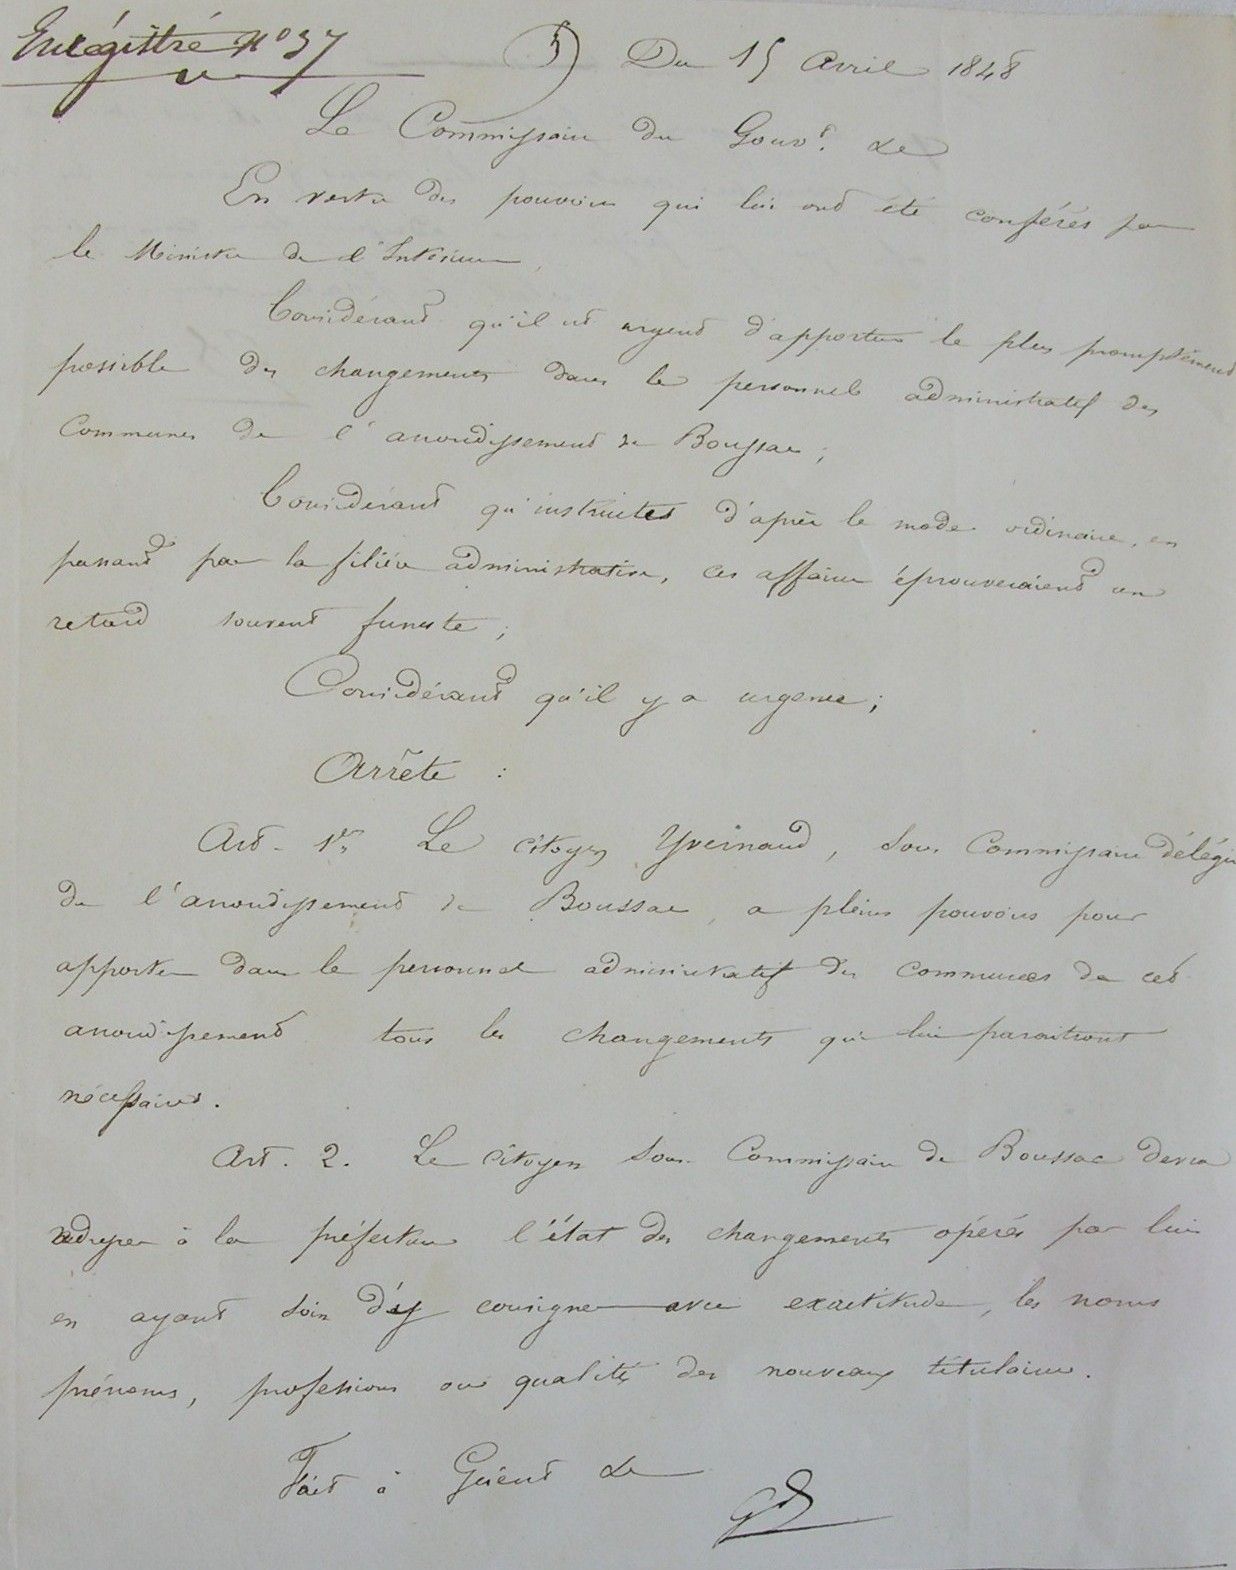 Enrégistré N° 37
5) Du 15 Avril 1848
Le Commissaire du Gouvt. &e
En vertu des pouvoirs qui lui ont été conférés par
le Ministre de l'Intérieur,
Considérant qu'il est urgent d'apporter le plus promptement
possible des changements dans le personnel administratif des
Communes de l'arrondissement de Boussac ;
Considérant qu'instruites d'après le mode ordinaire, en
passant par la filière administrative, ces affaires éprouveraient un
retard souvent funeste ;
Considérant qu'il y a urgence ;
Arrête :
Art. 1er. Le citoyen Yvernaud, Sous Commissaire délégué
de l'arrondissement de Boussac, a pleins pouvoirs pour
apporter dans le personnel administratif des communes de cet
arrondissement tous les changements qui lui paraitront
nécessaires.
Art. 2. Le citoyen Sous Commissaire de Boussac devra
adresser à la préfecture l'état des changements opérés par lui
en ayant soin d'y consigner avec exactitude, les noms
prénoms, professions ou qualités des nouveaux titulaires.
Fait à Guéret &e